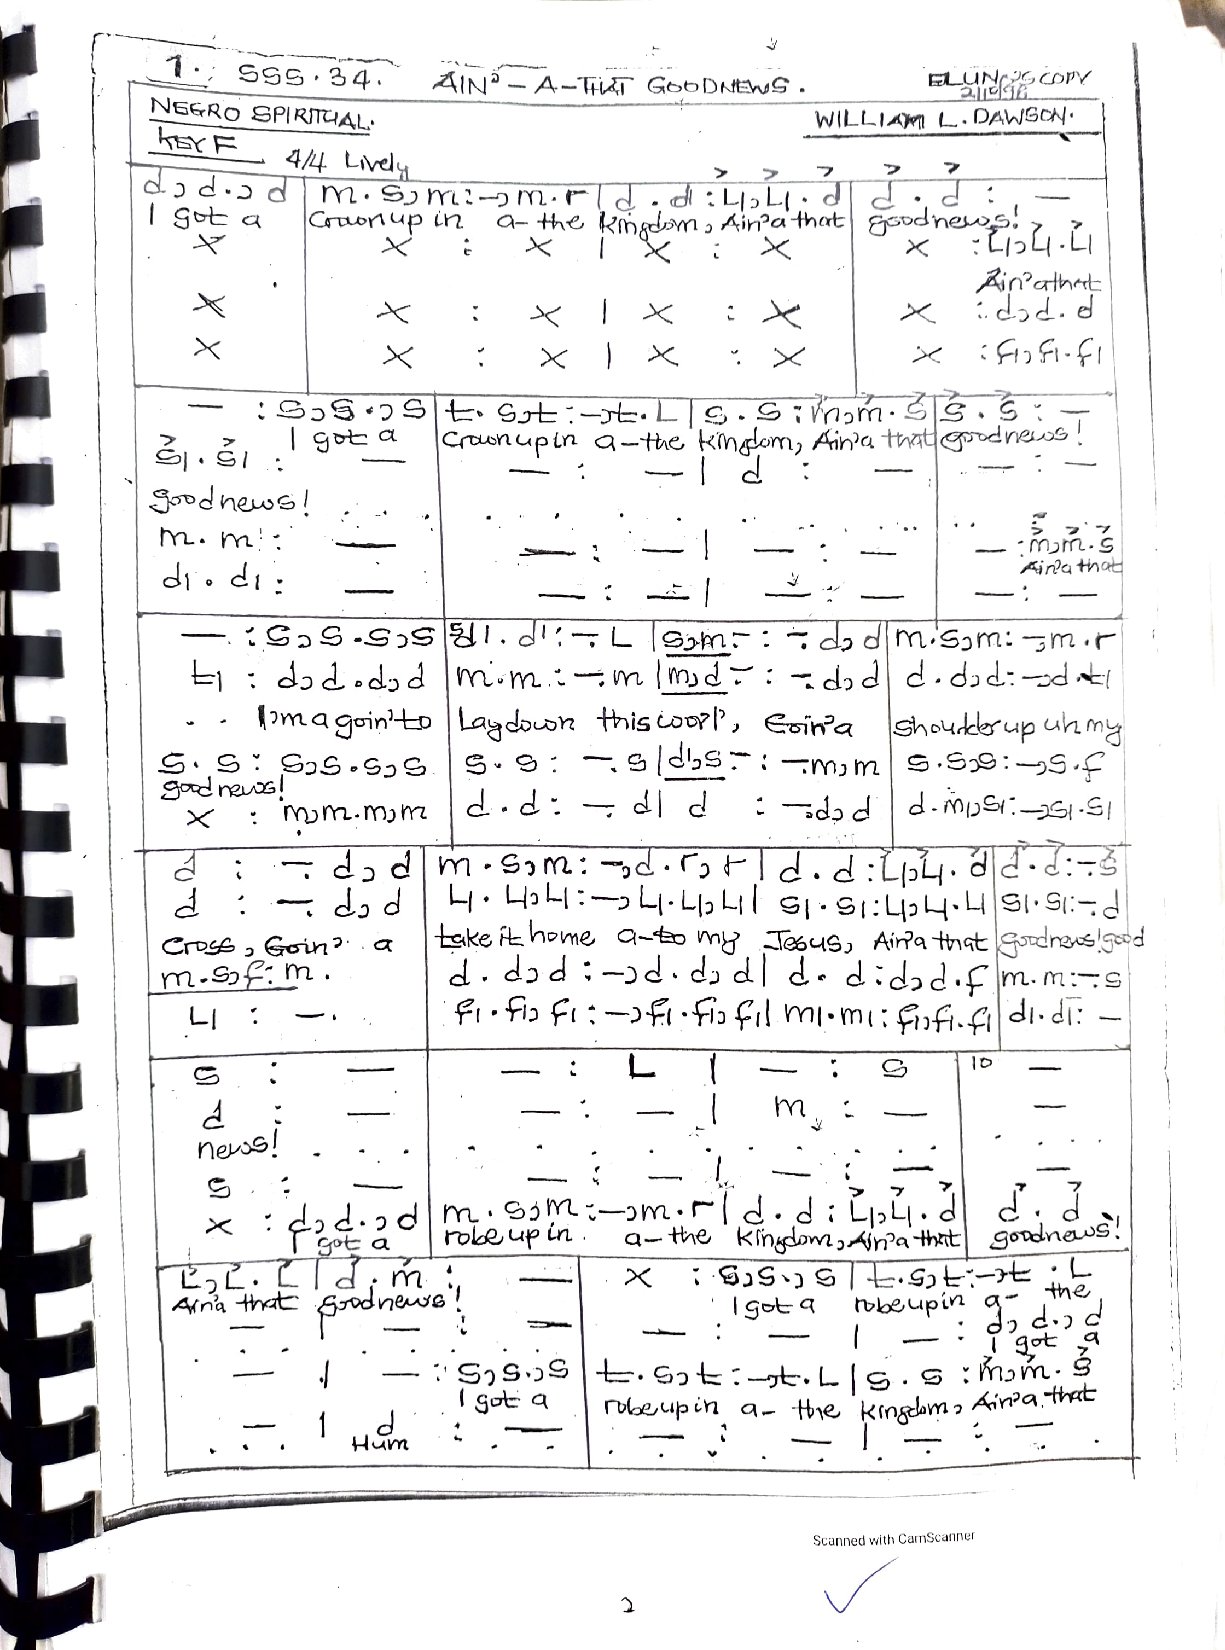 1. SSS.34. AIN' - A-THAT GOODNEWS. ELUN'S COPY
2/10/98
NEGRO SPIRITUAL. WILLIAM L. DAWSON.
KEY F
4/4 Lively
d , d . , d | m . s , m : - , m . r | d . d : l₁ , l₁ . d | d . d : —
I got a Crown up in a- the kingdom, Ain'a that goodnews!
x x : x | x : x x : l₁ , l₁ . l₁
Ain'a that
x x : x | x : x x : d , d . d
x x : x | x : x x : f₁ , f₁ . f₁
— : s , s . , s | t . s , t : - , t . l | s . s : m , m . s | s . s : —
I got a Crown up in a-the kingdom, Ain'a that goodnews!
s₁ . s₁ : — — : — | d : — — : —
goodnews!
m . m : — — : — | — : — — : m , m . s
Ain'a that
d₁ . d₁ : — — : — | — : — — : —
— : s , s . s , s | d¹ . d¹ : - . l | s , m - : - . d , d | m . s , m : - , m . r
t₁ : d , d . d , d | m . m : - . m | m , d - : - . d , d | d . d , d : - , d . t₁
I'm a goin' to Lay down this worl', Goin'a shoulder up uh my
s . s : s , s . s , s | s . s : - . s | d¹ , s - : - . m , m | s . s , s : - , s . f
goodnews!
x : m , m . m , m | d . d : - . d | d : - . d , d | d . m₁ , s₁ : - , s₁ . s₁
d : - . d , d | m . s , m : - , d . r , r | d . d : l₁ , l₁ . d | d . d : - . s
d : - . d , d | l₁ . l₁ , l₁ : - , l₁ . l₁ , l₁ | s₁ . s₁ : l₁ , l₁ . l₁ | s₁ . s₁ : - . d
Cross, Goin' a take it home a-to my Jesus, Ain'a that goodnews! good
m . s , f : m . d . d , d : - , d . d , d | d . d : d , d . f | m . m : - . s
l₁ : - . f₁ . f₁ , f₁ : - , f₁ . f₁ , f₁ | m₁ . m₁ : f₁ , f₁ . f₁ | d₁ . d₁ : —
s : — — : l | — : s 10 —
d : — — : — | m : — —
news!
s : — — : — | — : — —
x : d , d . , d | m . s , m : - , m . r | d . d : l₁ , l₁ . d | d . d
I got a robe up in a- the kingdom, Ain'a that goodnews!
l , l . l | d . m : — x : s , s . , s | t . s , t : - , t . l
Ain'a that goodnews! I got a robe up in a- the
— | — : — — : — | — : d , d . , d
I got a
— | — : s , s . , s t . s , t : - , t . l | s . s : m , m . s
I got a robe up in a- the kingdom, Ain'a that
— | d : — — : — | — : —
Hum
Scanned with CamScanner
2